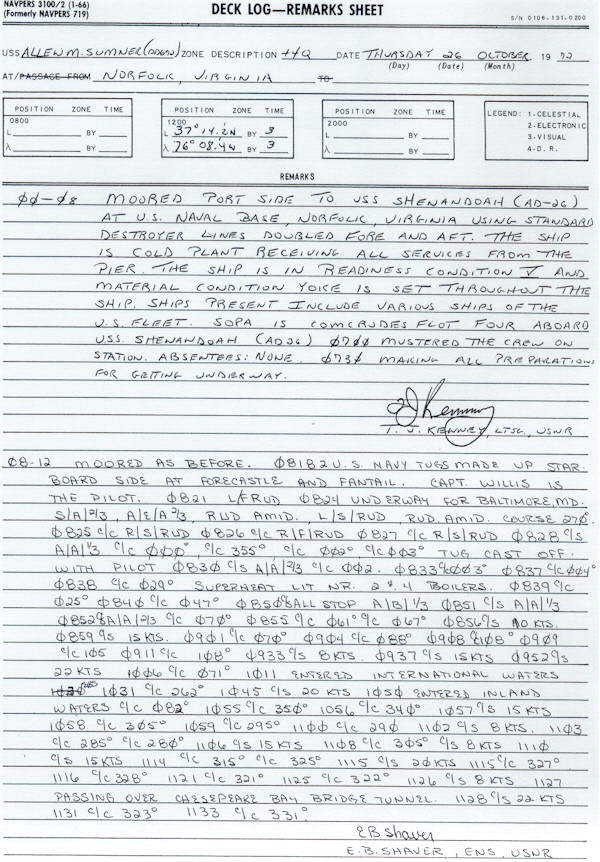 NAVPERS 3100/2 (1-66)
(Formerly NAVPERS 719)
DECK LOG—REMARKS SHEET
S/N 0106-131-0200
USS ALLEN M. SUMNER (DD692) ZONE DESCRIPTION +4Q DATE THURSDAY 26 OCTOBER 1972
(Day) (Date) (Month)
AT/PASSAGE FROM NORFOLK, VIRGINIA TO
POSITION ZONE TIME
0800
L BY
λ BY
POSITION ZONE TIME
1200
L 37° 14.2N BY 3
λ 76° 08.4W BY 3
POSITION ZONE TIME
2000
L BY
λ BY
LEGEND: 1-CELESTIAL
2-ELECTRONIC
3-VISUAL
4-D. R.
REMARKS
00-08 MOORED PORT SIDE TO USS SHENANDOAH (AD-26)
AT U.S. NAVAL BASE, NORFOLK, VIRGINIA USING STANDARD
DESTROYER LINES DOUBLED FORE AND AFT. THE SHIP
IS COLD PLANT RECEIVING ALL SERVICES FROM THE
PIER. THE SHIP IS IN READINESS CONDITION V AND
MATERIAL CONDITION YOKE IS SET THROUGHOUT THE
SHIP. SHIPS PRESENT INCLUDE VARIOUS SHIPS OF THE
U.S. FLEET. SOPA IS COMCRUDESFLOT FOUR ABOARD
USS. SHENANDOAH (AD26) 0700 MUSTERED THE CREW ON
STATION. ABSENTEES: NONE. 0730 MAKING ALL PREPARATIONS
FOR GETTING UNDERWAY.
T. J. KENNEY, LTJG, USNR
08-12 MOORED AS BEFORE. 0818 2 U.S. NAVY TUGS MADE UP STAR-
BOARD SIDE AT FORECASTLE AND FANTAIL. CAPT. WILLIS IS
THE PILOT. 0821 L/F RUD 0824 UNDERWAY FOR BALTIMORE, MD.
S/A/2/3, A/E/A 2/3, RUD AMID. L/S/RUD, RUD. AMID. COURSE 270°
0825 C/C R/S/RUD 0826 C/C R/F/RUD 0827 C/C R/S/RUD 0828 C/S
A/A/1/3 C/C 000°, C/C 355° C/C 002° C/C 003° TUG CAST OFF
WITH PILOT 0830 C/S A/A/2/3 C/C 002. 0833 C/C 003° 0837 C/C 004°
0838 C/C 029° SUPERHEAT LIT NR. 2 & 4 BOILERS. 0839 C/C
025° 0840 C/C 047° 0850 ALL STOP A/B/1/3 0851 C/S A/A/1/3
0852 A/A/2/3 C/C 070° 0855 C/C 061° C/C 067° 0856 C/S 10 KTS.
0859 C/S 15 KTS. 0901 C/C 070° 0904 C/C 088° 0908 C/C 108° 0909
C/C 105 0911 C/C 108° 0933 C/S 8 KTS. 0937 C/S 15 KTS 0952 C/S
22 KTS 1006 C/C 071° 1011 ENTERED INTERNATIONAL WATERS
1031 C/C 262° 1045 C/S 20 KTS 1050 ENTERED INLAND
WATERS C/C 082° 1055 C/C 350° 1056 C/C 340° 1057 C/S 15 KTS
1058 C/C 305° 1059 C/C 295° 1100 C/C 290 1102 C/S 8 KTS. 1103
C/C 285° C/C 280° 1106 C/S 15 KTS 1108 C/C 305° C/S 8 KTS. 1110
C/S 15 KTS. 1114 C/C 315° C/C 325° 1115 C/S 20 KTS 1115 C/C 327°
1116 C/C 328° 1121 C/C 321° 1125 C/C 322° 1126 C/S 8 KTS 1127
PASSING OVER CHESEPEAKE BAY BRIDGE TUNNEL. 1128 C/S 22 KTS
1131 C/C 323° 1133 C/C 331°
EB Shaver
E. B. SHAVER, ENS, USNR